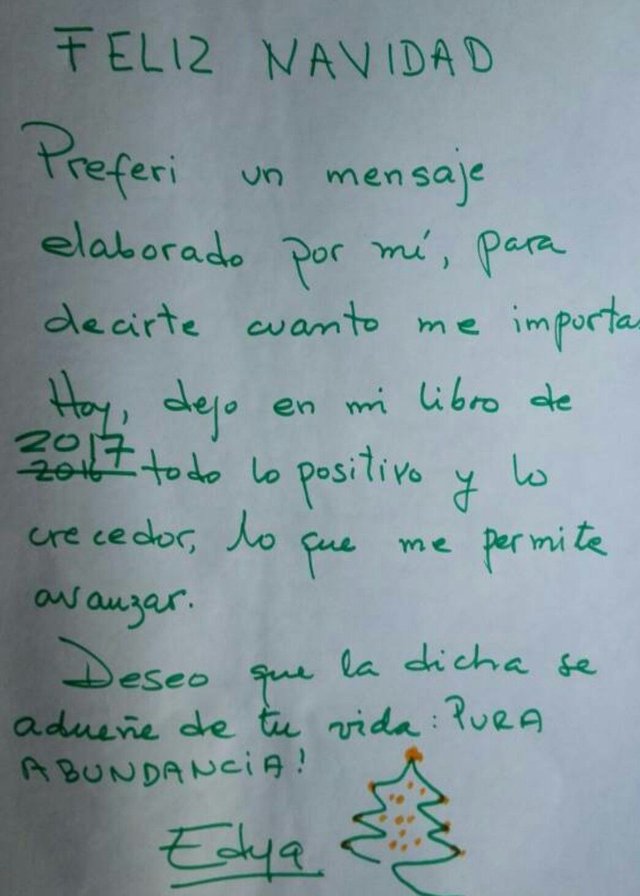 FELIZ NAVIDAD
Preferi un mensaje
elaborado por mí, para
decirte cuanto me importas
Hoy, dejo en mi libro de
2017
2016 todo lo positivo y lo
crecedor, lo que me permite
avanzar.
Deseo que la dicha se
adueñe de tu vida: PURA
ABUNDANCiA!
Edya